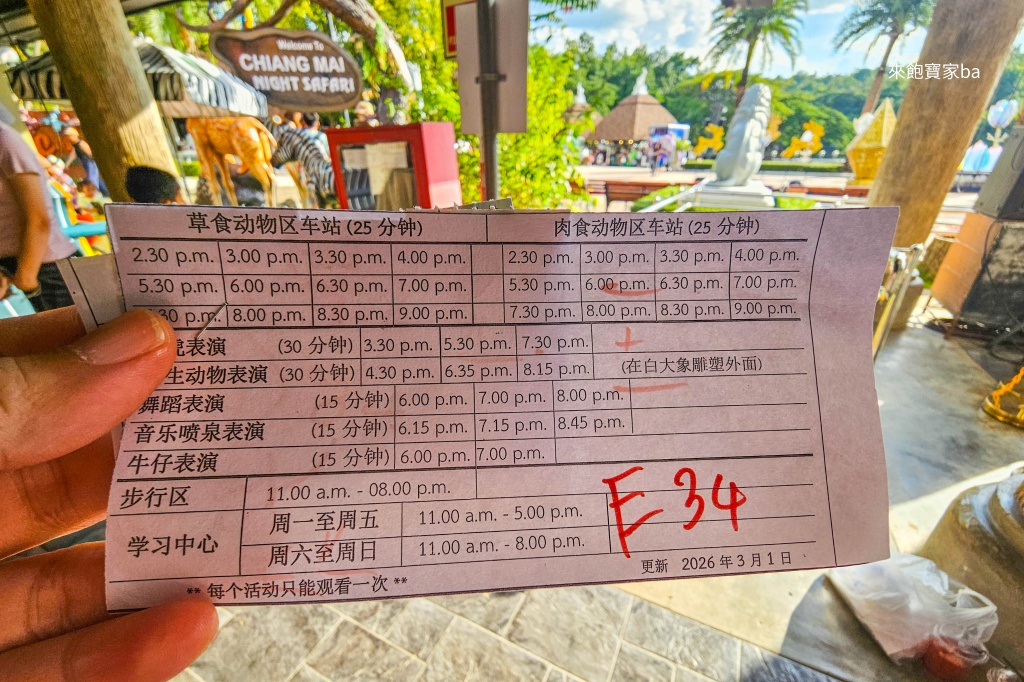 Welcome To
CHIANG MAI
NIGHT SAFARI
來飽寶家ba
草食动物区车站 (25 分钟) 肉食动物区车站 (25 分钟)
2.30 p.m. 3.00 p.m. 3.30 p.m. 4.00 p.m. 2.30 p.m. 3.00 p.m. 3.30 p.m. 4.00 p.m.
5.30 p.m. 6.00 p.m. 6.30 p.m. 7.00 p.m. 5.30 p.m. 6.00 p.m. 6.30 p.m. 7.00 p.m.
30 p.m. 8.00 p.m. 8.30 p.m. 9.00 p.m. 7.30 p.m. 8.00 p.m. 8.30 p.m. 9.00 p.m.
表演 (30 分钟) 3.30 p.m. 5.30 p.m. 7.30 p.m.
生动物表演 (30 分钟) 4.30 p.m. 6.35 p.m. 8.15 p.m. (在白大象雕塑外面)
舞蹈表演 (15 分钟) 6.00 p.m. 7.00 p.m. 8.00 p.m.
音乐喷泉表演 (15 分钟) 6.15 p.m. 7.15 p.m. 8.45 p.m.
牛仔表演 (15 分钟) 6.00 p.m. 7.00 p.m.
步行区 11.00 a.m. - 08.00 p.m.
学习中心 周一至周五 11.00 a.m. - 5.00 p.m.
周六至周日 11.00 a.m. - 8.00 p.m.
E 34
更新 2026 年 3 月 1 日
** 每个活动只能观看一次 **